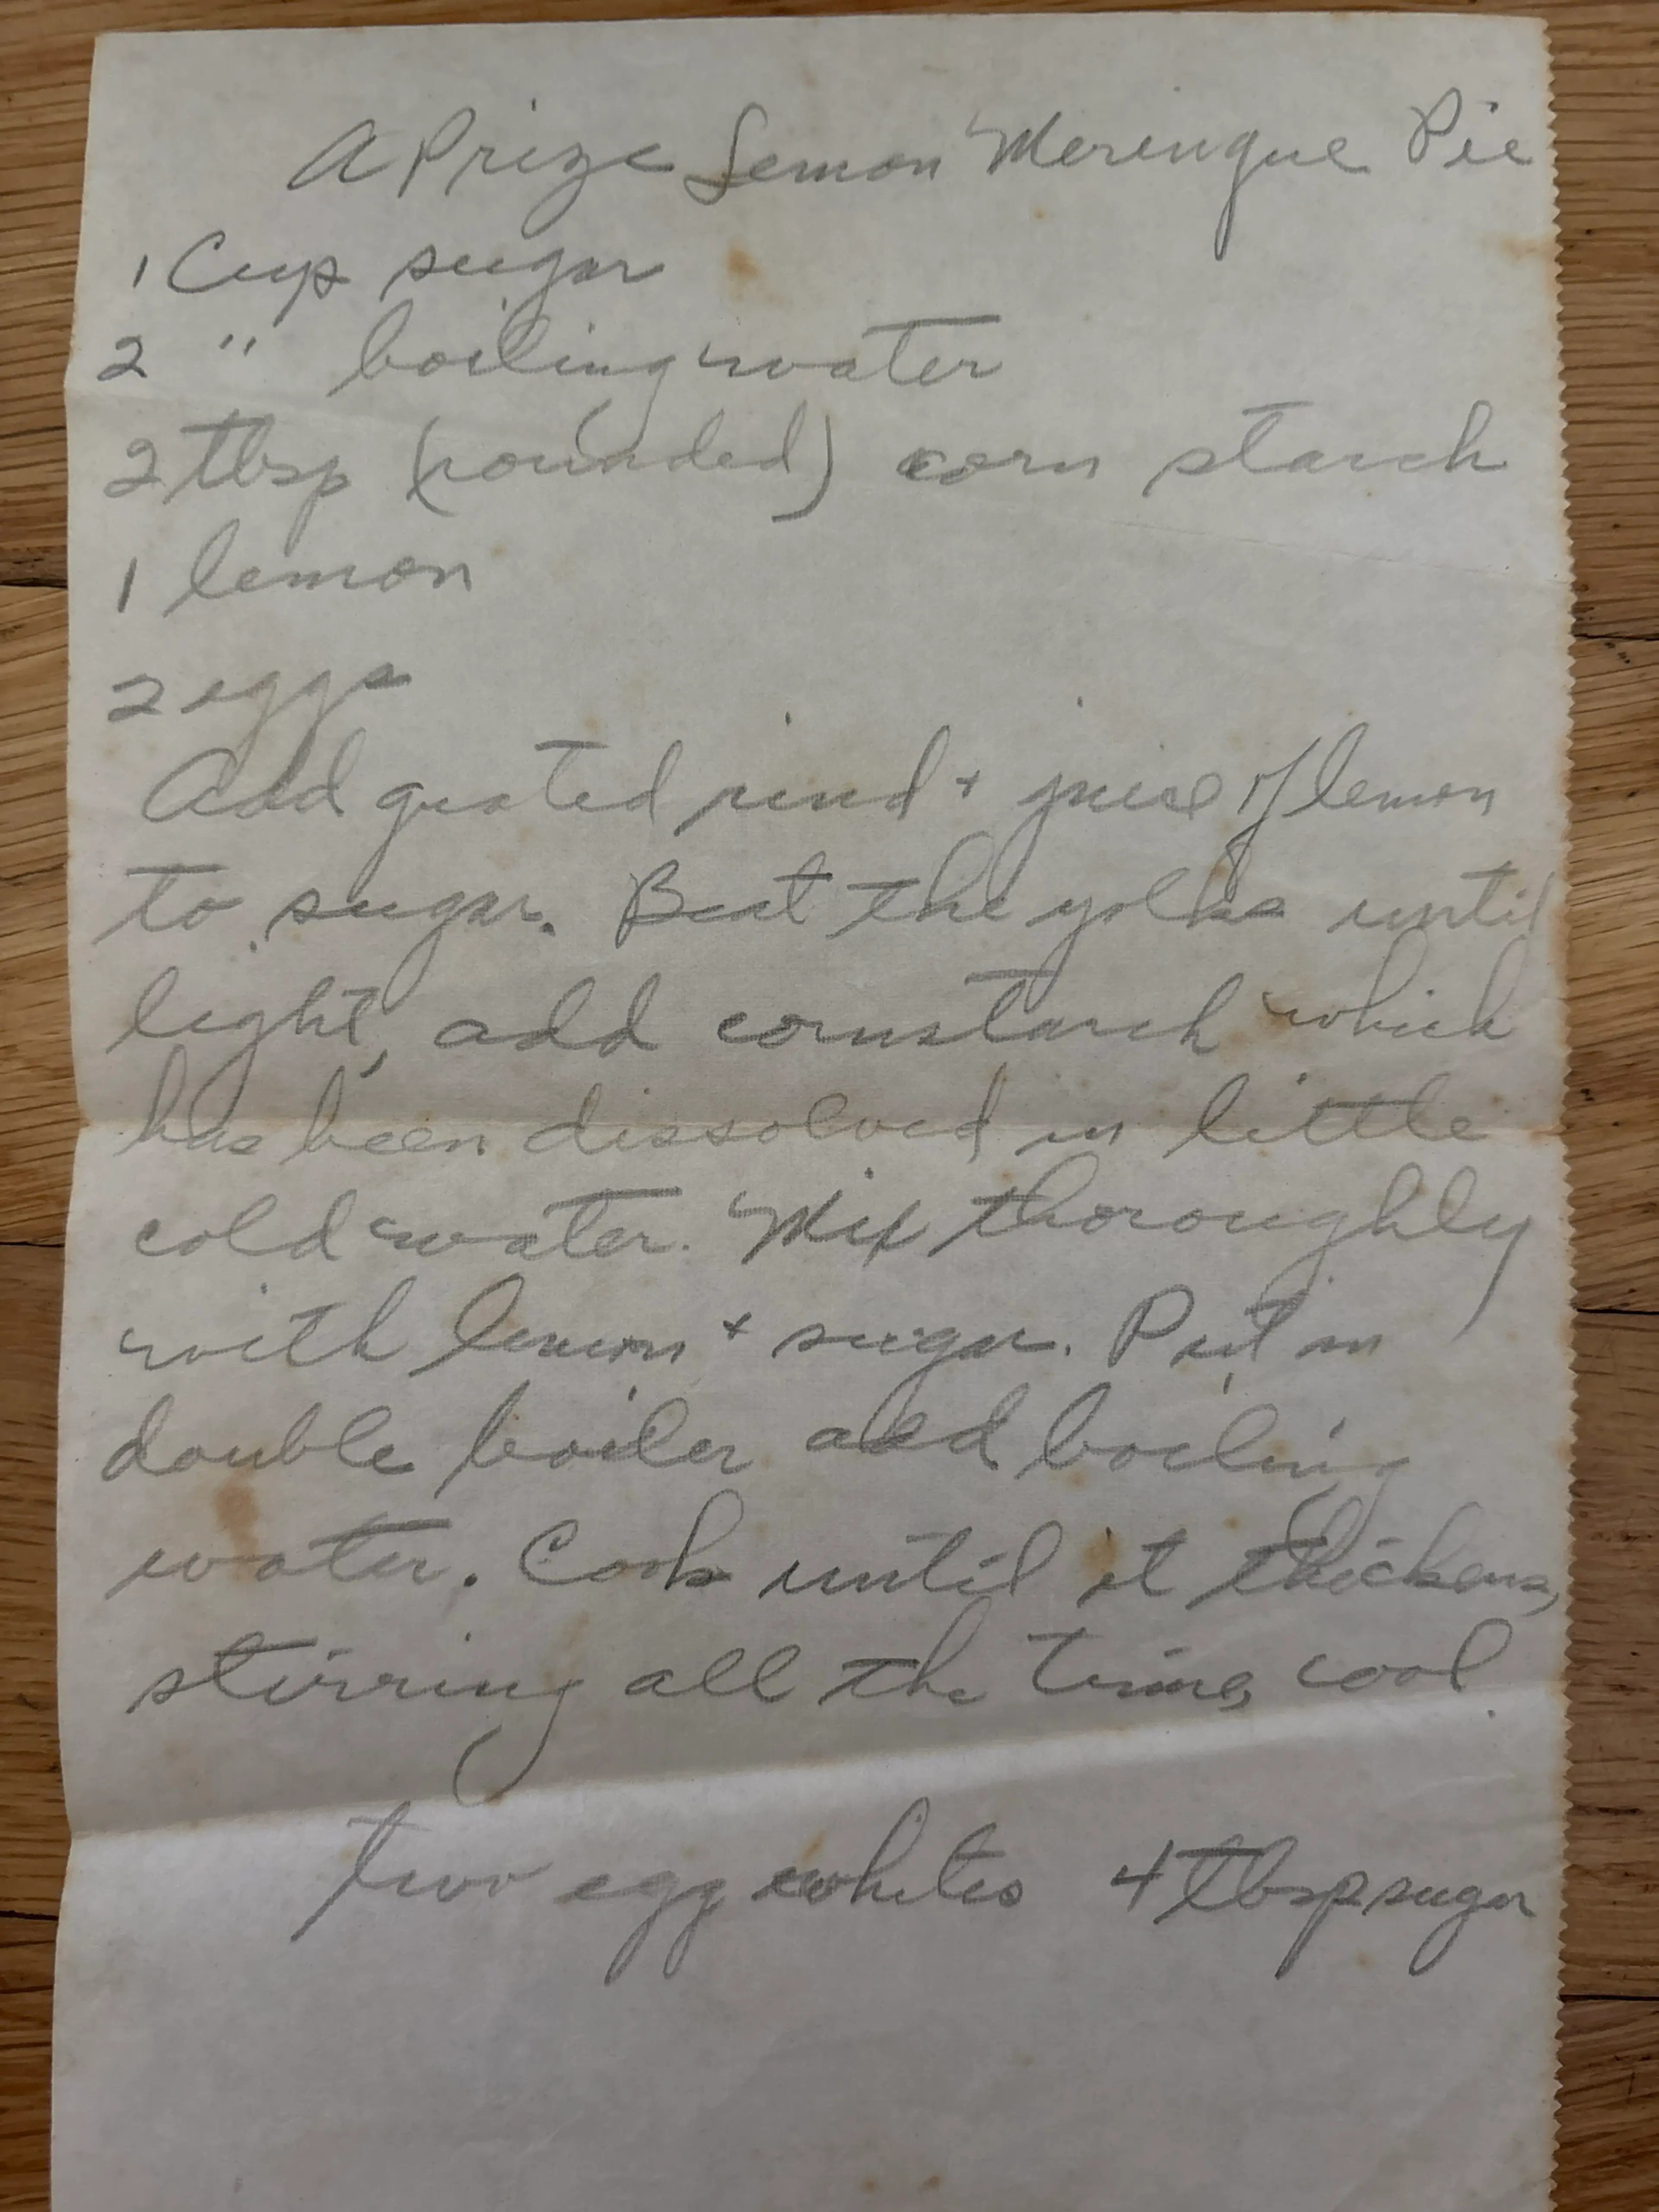 A Prize Lemon Meringue Pie
1 Cup sugar
2 " boiling water
2 tbsp (rounded) corn starch
1 lemon
2 eggs
Add grated rind + juice of lemon
to sugar. Beat the yolks until
light, add cornstarch which
has been dissolved in little
cold water. Mix thoroughly
with lemon + sugar. Put in
double boiler add boiling
water. Cook until it thickens,
stirring all the time, cool.
two egg whites 4 tbsp sugar